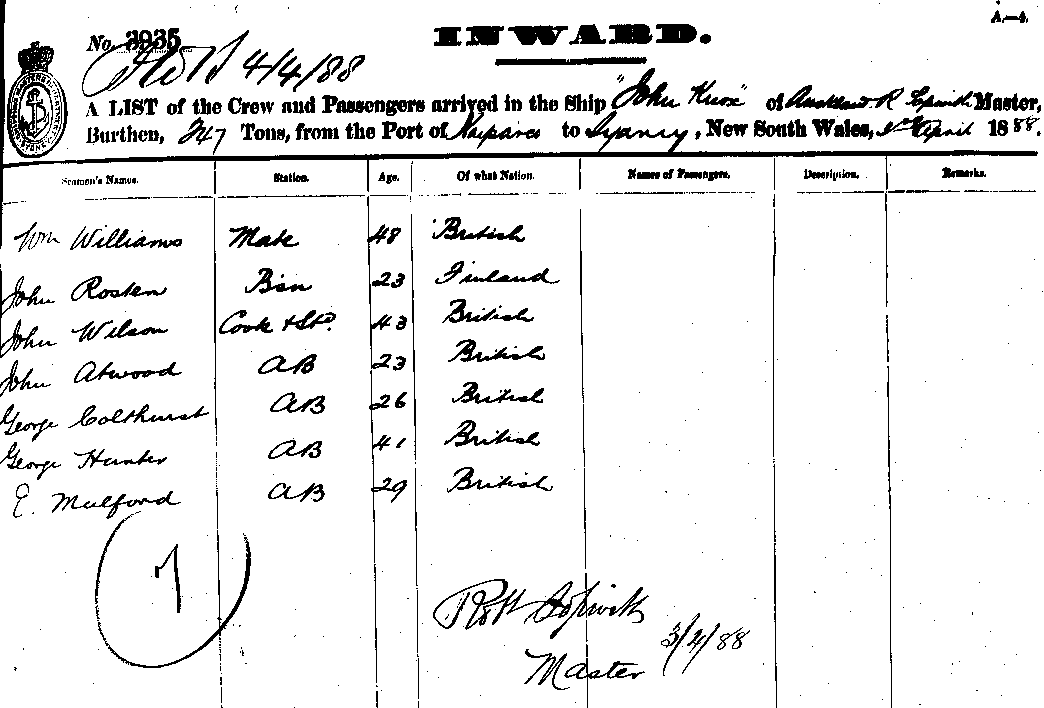 A.—4.
No. 3935
INWARD.
4/4/88
A LIST of the Crew and Passengers arrived in the Ship "John Knox" of Auckland R Master,
Burthen, 247 Tons, from the Port of Kaipara to Sydney, New South Wales, April 1888.
Seamen's Names. Station. Age. Of what Nation. Names of Passengers. Description. Remarks.
Wm Williams Mate 48 British
John Rosten Bsn 23 Finland
John Wilson Cook & Std. 43 British
John Atwood AB 23 British
George Colthurst AB 26 British
George Hunter AB 41 British
E. Mulford AB 29 British
7
Robt
3/4/88
Master